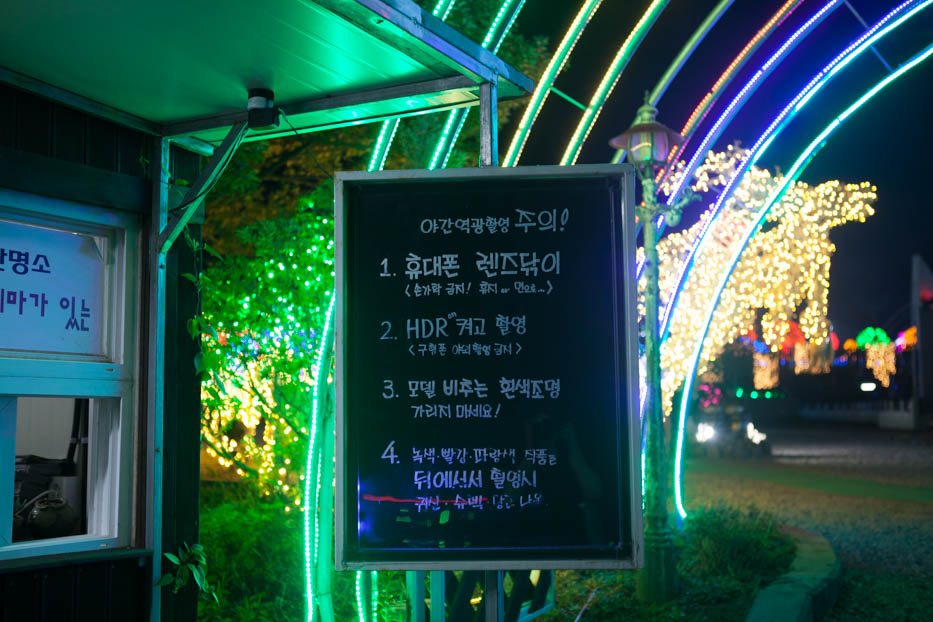 간명소
테마가 있는
야간역광촬영 주의!
1. 휴대폰 렌즈닦이
<손가락 금지! 휴지 or 면으로...>
2. HDR on 켜고 촬영
<구형폰 야외촬영 금지>
3. 모델 비추는 흰색조명
가리지 마세요!
4. 녹색·빨강·파랑색 작품들
뒤에서서 촬영시
귀신·슈렉